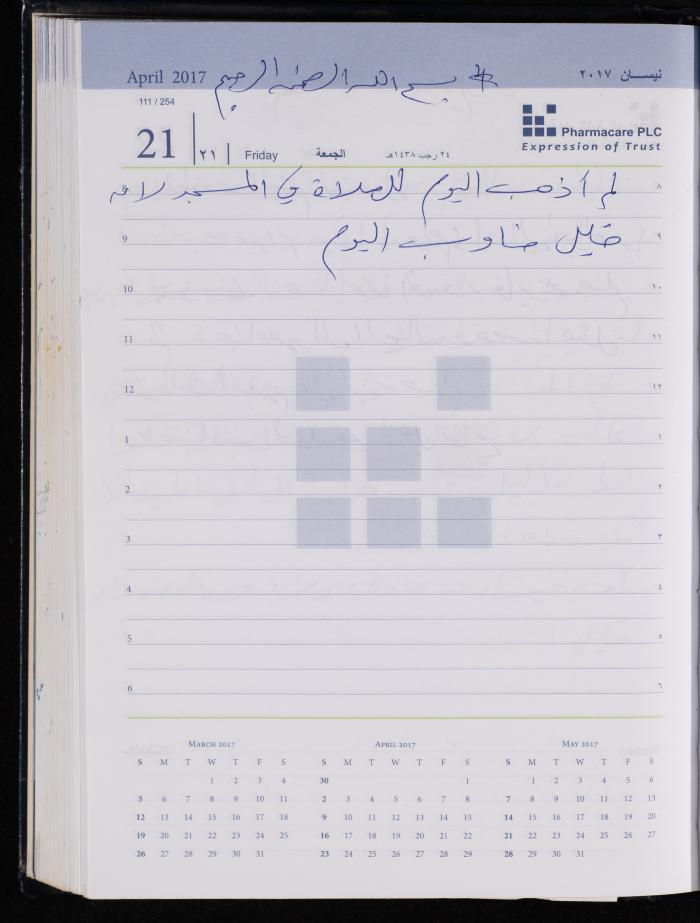 April 2017 # بسم الله الرحمن الرحيم نيسان ٢٠١٧
111 / 254
21 ٢١ Friday الجمعة ٢٤ رجب ١٤٣٨هـ
Pharmacare PLC
Expression of Trust
لم أذهب اليوم للصلاة في المسجد لأنه ٨
9 خليل مناوب اليوم ٩
10 ١٠
11 ١١
12 ١٢
1 ١
2 ٢
3 ٣
4 ٤
5 ٥
6 ٦
March 2017
S M T W T F S
1 2 3 4
5 6 7 8 9 10 11
12 13 14 15 16 17 18
19 20 21 22 23 24 25
26 27 28 29 30 31
April 2017
S M T W T F S
30 1
2 3 4 5 6 7 8
9 10 11 12 13 14 15
16 17 18 19 20 21 22
23 24 25 26 27 28 29
May 2017
S M T W T F S
1 2 3 4 5 6
7 8 9 10 11 12 13
14 15 16 17 18 19 20
21 22 23 24 25 26 27
28 29 30 31